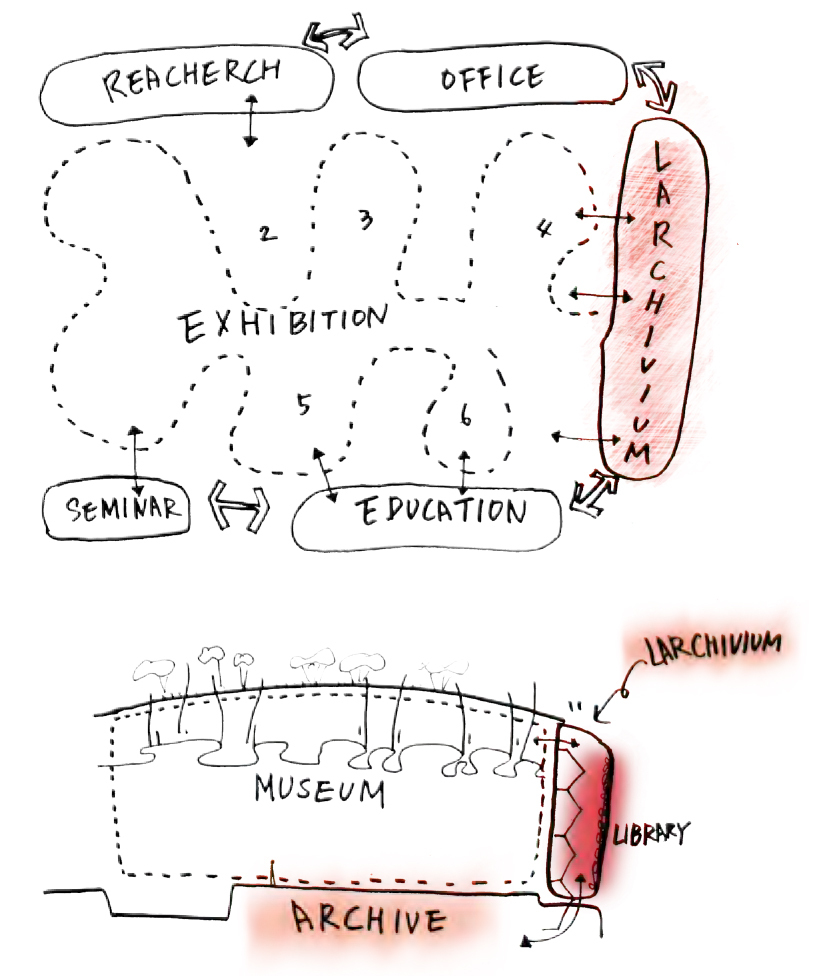 REACHERCH
OFFICE
LARCHIVIUM
2
3
4
EXHIBITION
5
6
SEMINAR
EDUCATION
LARCHIVIUM
MUSEUM
LIBRARY
ARCHIVE